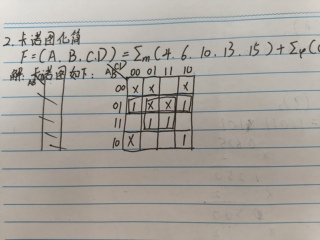 2.卡诺图化简
F=(A、B、C、D)=Σm(4、6、10、13、15)+Σφ(0
解:卡诺图如下:
AB CD 00 01 11 10
00 X X X
01 1 X X 1
11 1 1
10 X 1